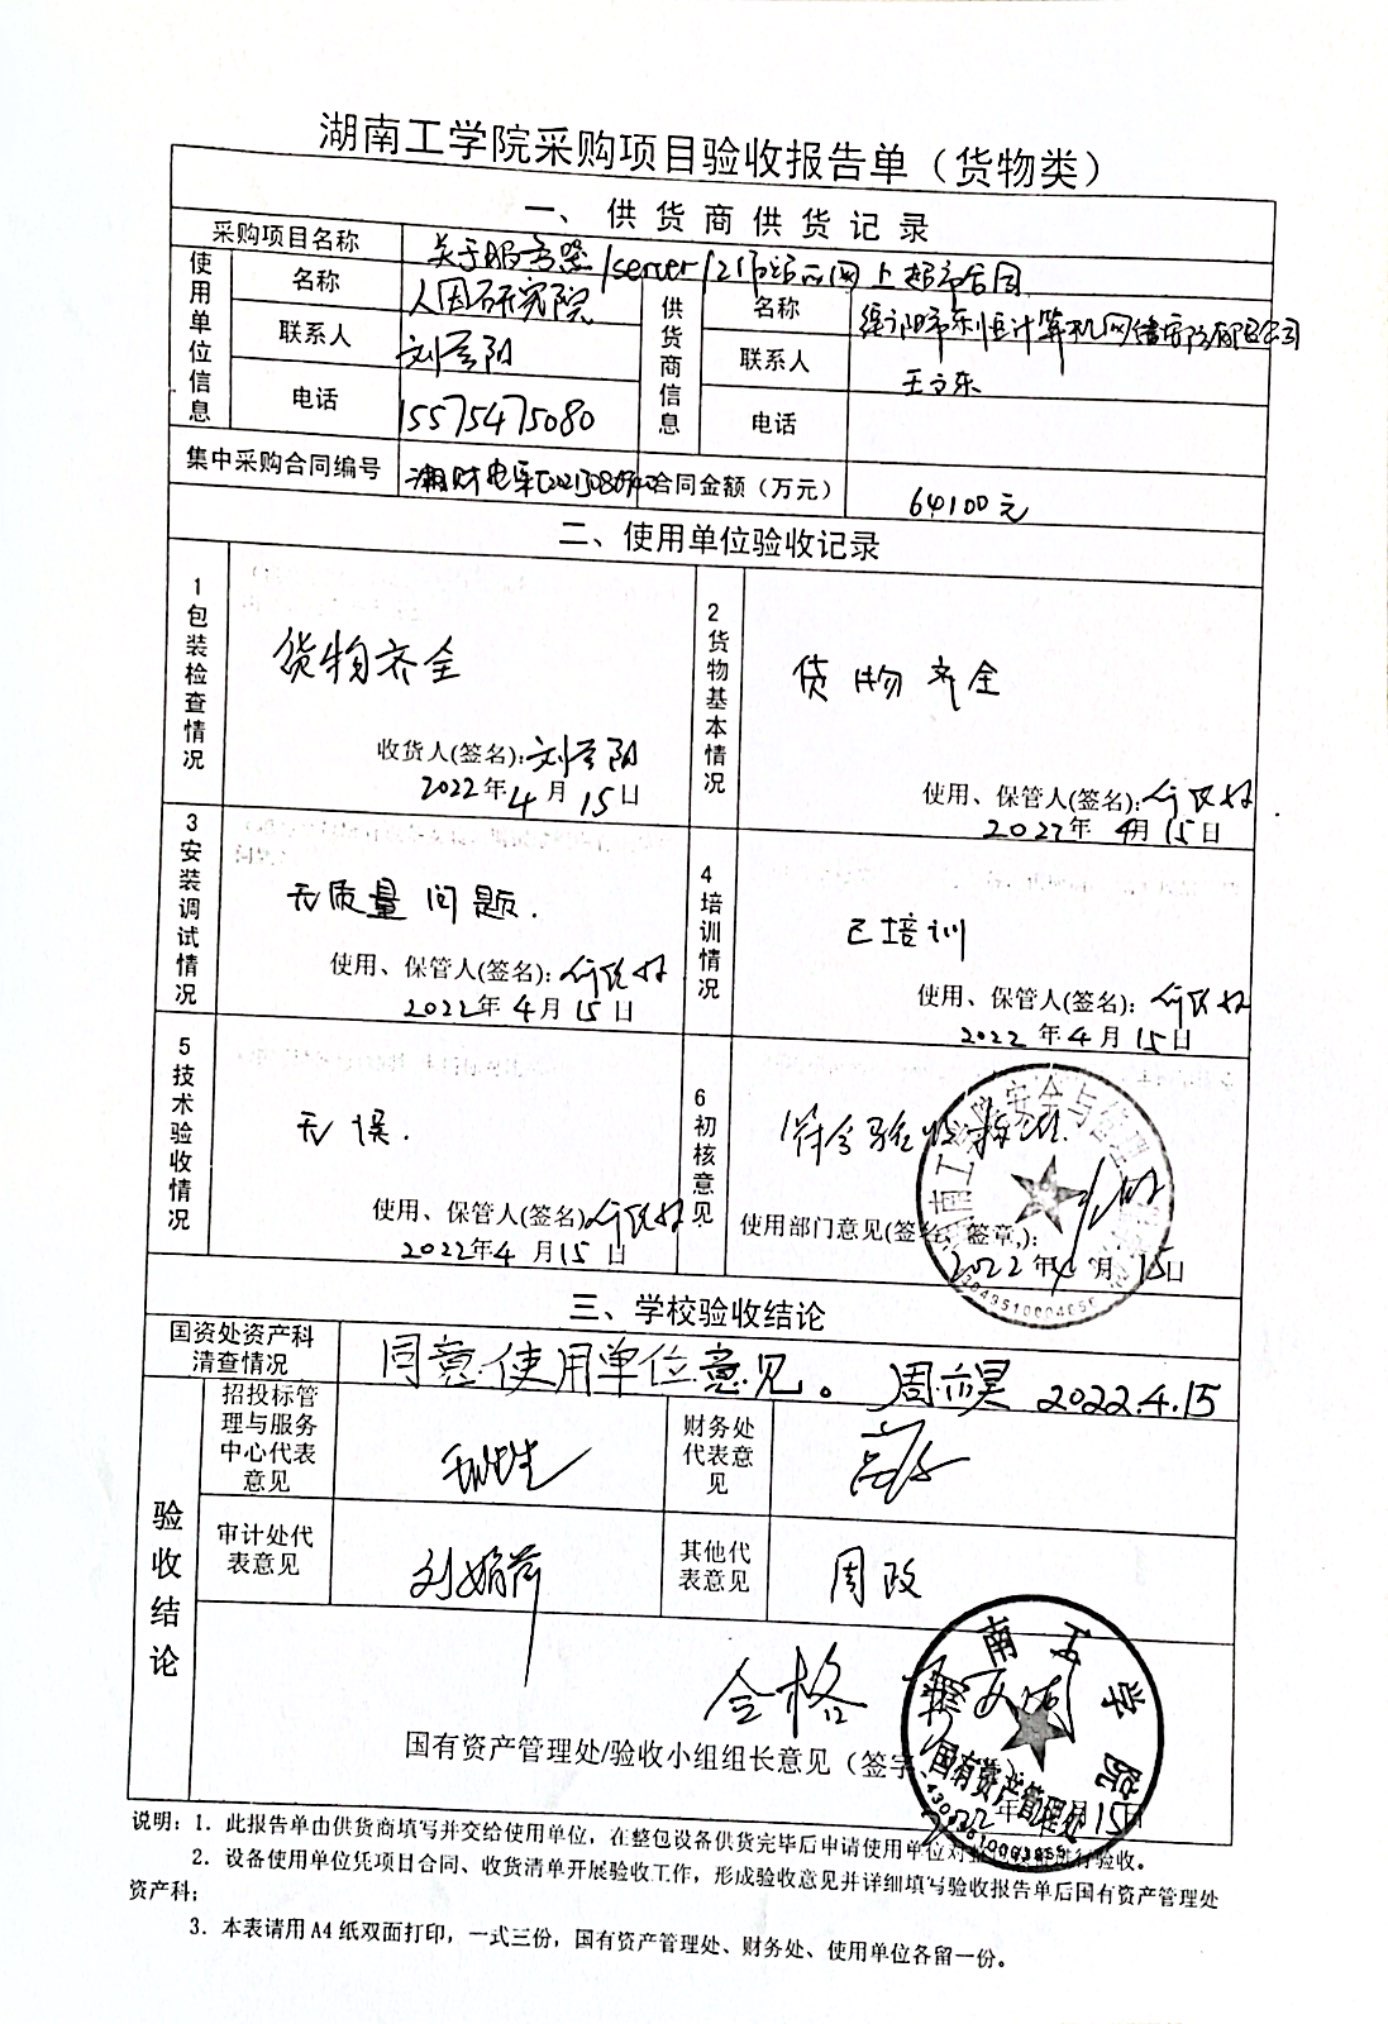 湖南工学院采购项目验收报告单（货物类）
一、供货商供货记录
采购项目名称 关于服务器/server/工作站的网上超市合同
使用单位信息 名称 人因研究院 供货商信息 名称
联系人 联系人 王立东
电话 15575475080 电话
集中采购合同编号 合同金额（万元） 64100元
二、使用单位验收记录
1包装检查情况 货物齐全
收货人(签名):
2022年4月15日
2货物基本情况 货物齐全
使用、保管人(签名):
2022年4月15日
3安装调试情况 无质量问题.
使用、保管人(签名):
2022年4月15日
4培训情况 已培训
使用、保管人(签名):
2022年4月15日
5技术验收情况 无误.
使用、保管人(签名)
2022年4月15日
6初核意见 符合验收标准.
使用部门意见(签名、签章,):
2022年4月15日
三、学校验收结论
国资处资产科清查情况 同意使用单位意见。 2022.4.15
验收结论
招投标管理与服务中心代表意见
财务处代表意见
审计处代表意见
其他代表意见 周政
合格
国有资产管理处/验收小组组长意见（签字
南工学院
国有资产管理处
说明：1．此报告单由供货商填写并交给使用单位，在整包设备供货完毕后申请使用单位对 进行验收。
2．设备使用单位凭项目合同、收货清单开展验收工作，形成验收意见并详细填写验收报告单后国有资产管理处
资产科；
3．本表请用A4纸双面打印，一式三份，国有资产管理处、财务处、使用单位各留一份。